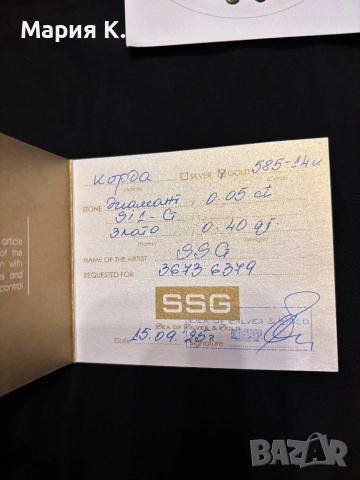 Мария К.
корда ☐ SILVER ☑ GOLD 585-14к
STONE диамант / 0.05 ct
Si1-G
злато / 0.40 gr
NAME OF THE ARTIST SSG
REQUESTED FOR 3673 6379
article
of the
n with
es and
control
SSG
SEA OF SILVER & GOLD
SEA OF SILVER & GOLD
Date 15.09.25г signature
BAZAR